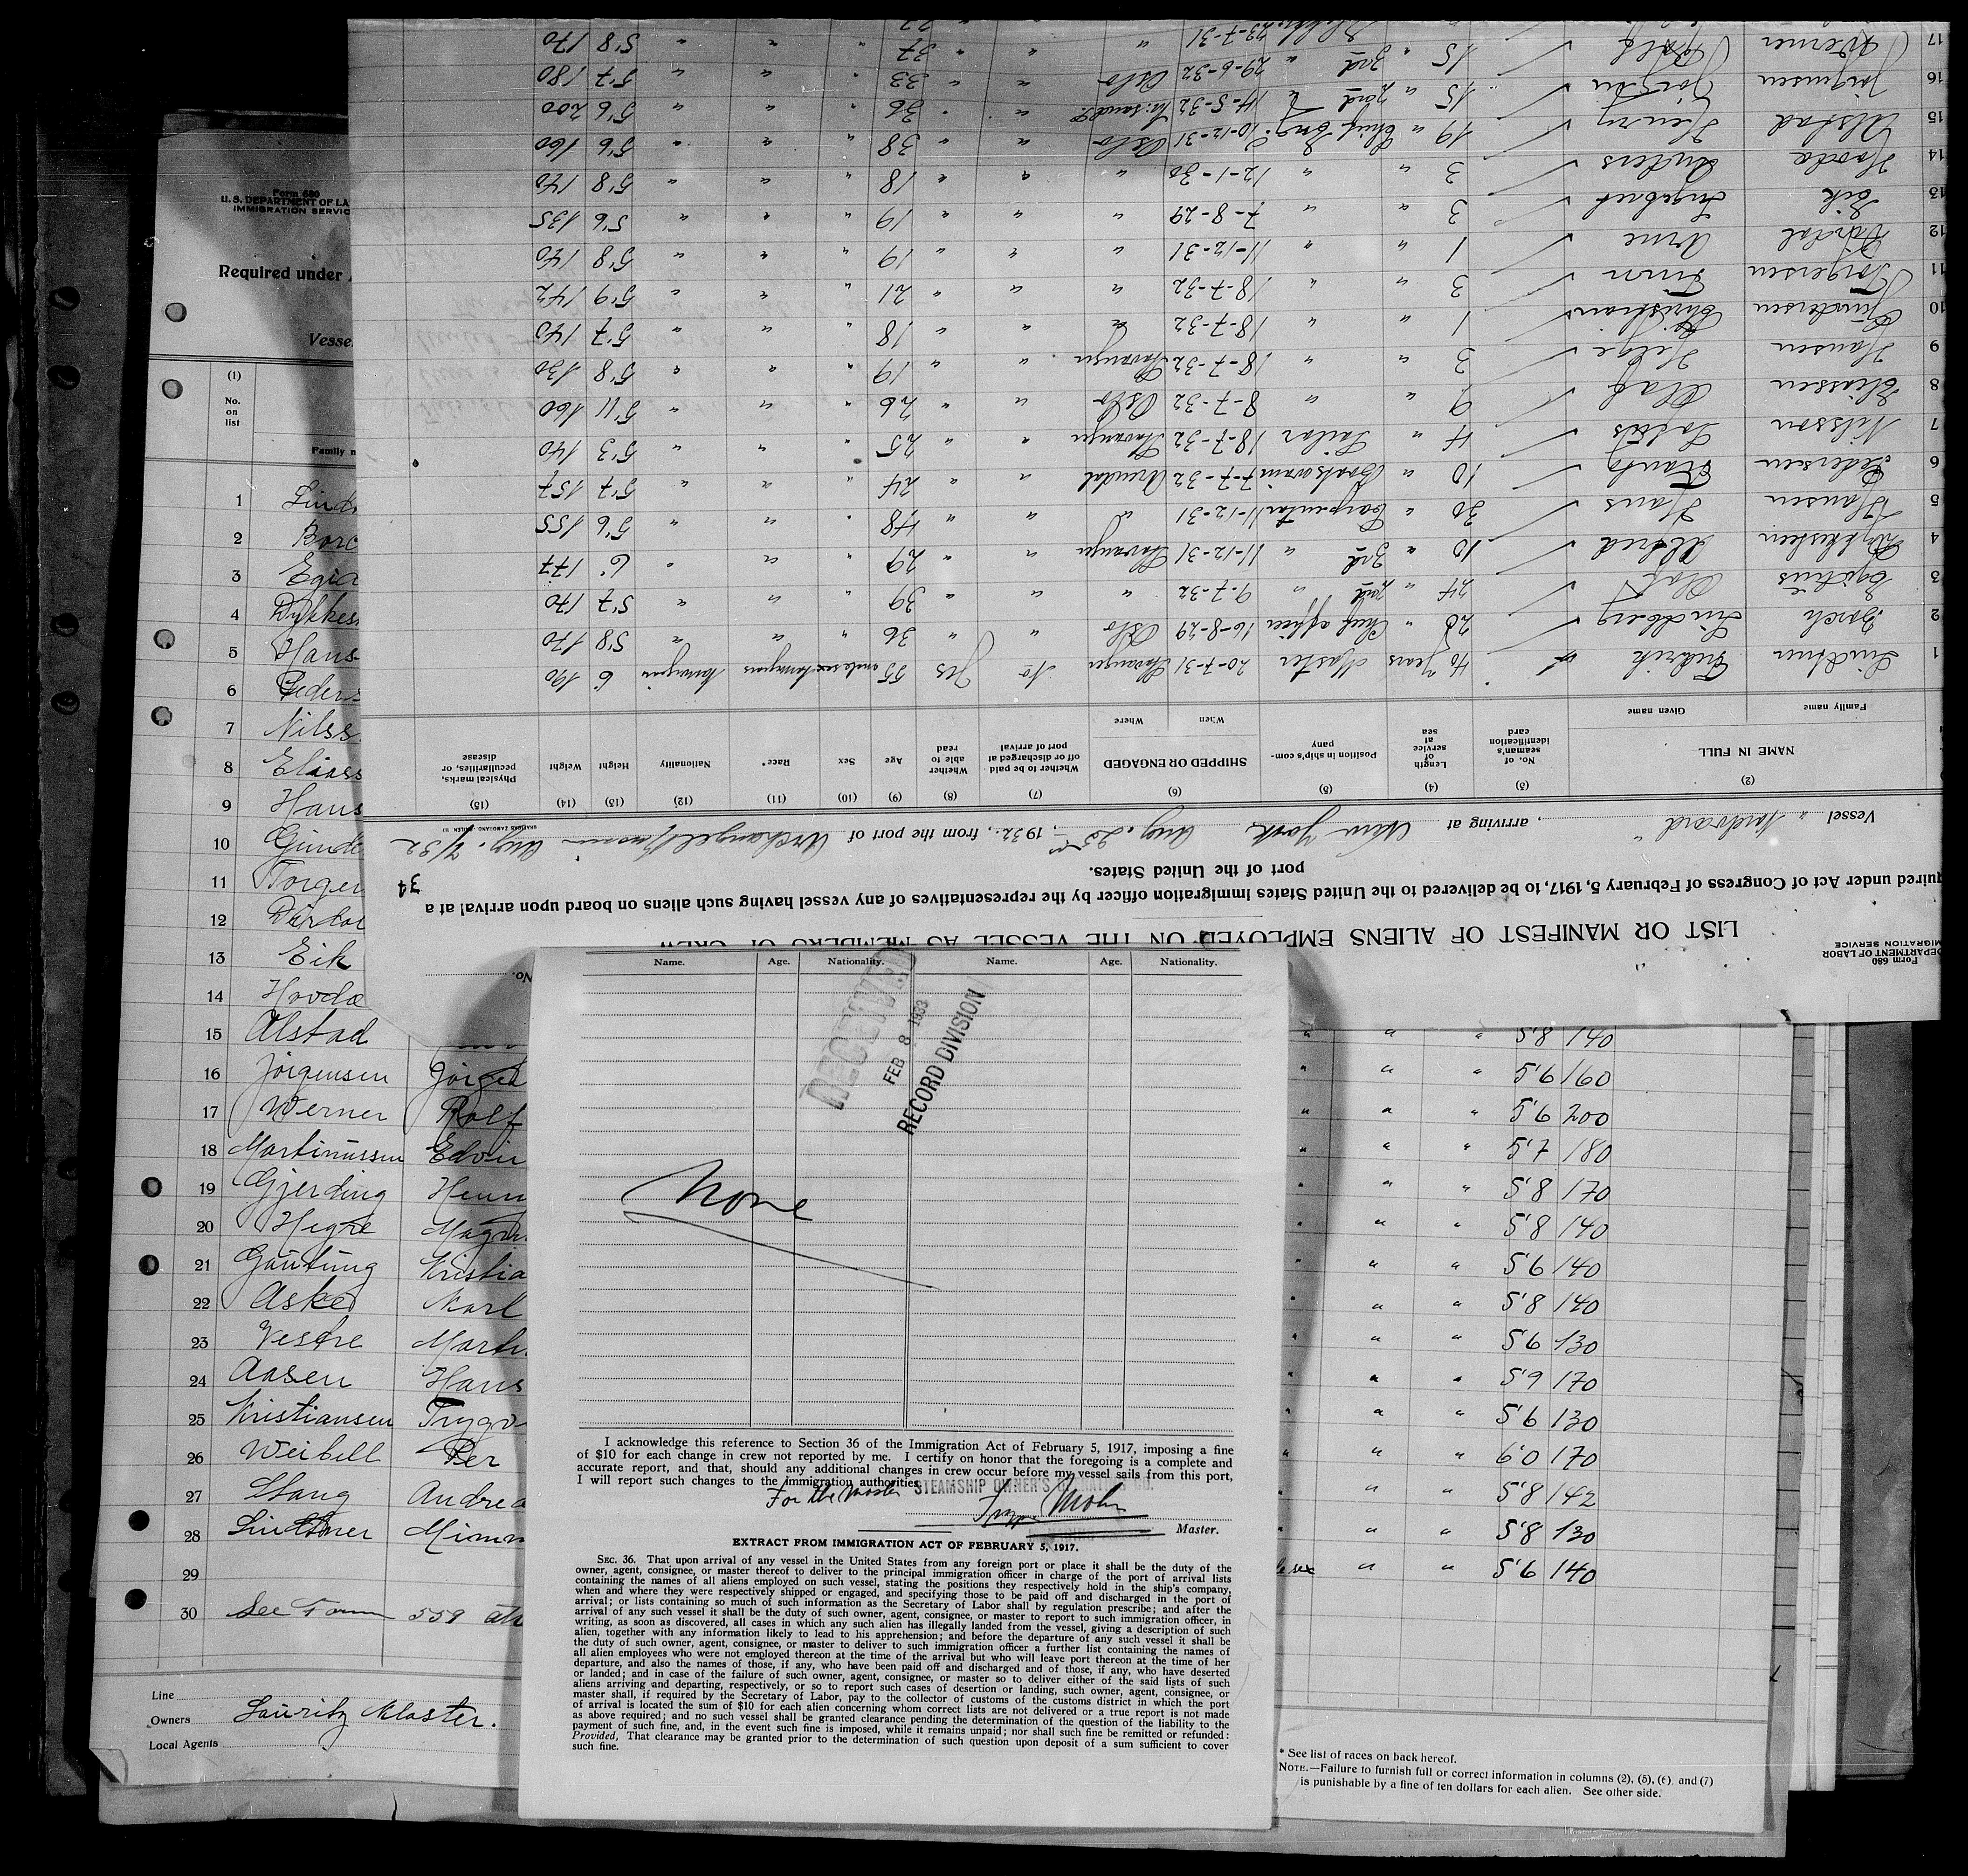 Form 680
U. S. DEPARTMENT OF LA
IMMIGRATION SERVIC
Required under
Vesse
(1)
No.
on
list
Family n
1 Lind
2 Borc
3
4 Dykkes
5 Hans
6 Peders
7 Nilss
8 Eliass
9 Hans
10 Gunde
11 Torger
12 Dirdal
13 Eik
14 Hovda
15 Alstad
16 Jörgensen Jörgen
17 Werner Rolf
18 Martinussen Edvin
19 Gjerding Henr
20 Hegre Magn
21 Gautung Kristia
22 Aske Karl
23 Vestre Marti
24 Aasen Hans
25 Kristiansen Trygv
26 Weibell Per
27 Stang Andrea
28 Lindtner Mimm
29
30 See Form 559
Line
Owners Lauritz Kloster.
Local Agents
Form 680
DEPARTMENT OF LABOR
MIGRATION SERVICE
LIST OR MANIFEST OF ALIENS EMPLOYED ON THE VESSEL AS MEMBERS OF CREW
quired under Act of Congress of February 5, 1917, to be delivered to the United States immigration officer by the representatives of any vessel having such aliens on board upon arrival at a
port of the United States.
34
Vessel "Nordvard", arriving at New York Aug. 25th, 1932, from the port of Archangel Aug. 7/32
(2) (3) (4) (5) (6) (7) (8) (9) (10) (11) (12) (13) (14) (15)
NAME IN FULL
Family name Given name
No. of seaman's identification card
Length of service at sea
Position in ship's company
SHIPPED OR ENGAGED
When Where
Whether to be paid off or discharged at port of arrival
Whether able to read
Age
Sex
Race*
Nationality
Height
Weight
Physical marks, peculiarities, or disease
1 Lindtner Fredrik 40 years Master 20-7-31 Stavanger No Yes 55 6' 190
2 Borch Lindberg 20 " Chief officer 16-8-29 Oslo " " 36 " " " 5'8 170
3 Olaf 24 " 2nd " 9-7-32 " " " 39 " " " 5'7 170
4 Dykkesteen Alfred 10 " 3rd " 11-12-31 Stavanger " " 29 " " " 6' 177
5 Hansen Hans 30 " Carpenter 11-12-31 " " " 48 " " " 5'6 155
6 Pedersen Frants 10 " Boatswain 7-7-32 Arendal " " 24 " " " 5'7 157
7 Nilsson 4 " Sailor 18-7-32 Stavanger " " 25 " " " 5'3 140
8 Eliassen Olaf 9 " " 8-7-32 Oslo " " 26 " " " 5'11 160
9 Hansen Helge 2 " " 18-7-32 Stavanger " " 19 " " " 5'8 130
10 Gundersen Christian 1 " " 18-7-32 " " " 18 " " " 5'7 140
11 Torgersen Finn 3 " " 18-7-32 " " " 21 " " " 5'9 142
12 Dirdal Arne 1 " " 11-12-31 " " " 19 " " " 5'8 140
13 Eik Ingebret 3 " " 7-8-29 " " " 19 " " " 5'6 135
14 Hovda Anders 3 " " 12-1-30 " " " 18 " " " 5'8 140
15 Alstad Henry 19 " Chief Eng. 10-12-31 Oslo " " 38 " " " 5'6 160
16 Jörgensen Jörgen 15 " 2nd " 14-5-32 Kr.sand S. " " 36 " " " 5'6 200
17 Werner Rolf 15 " 3rd " 29-6-32 Oslo " " 33 " " " 5'7 180
23-7-31 " " " 37 " " " 5'8 170
No.
Name. Age. Nationality. Name. Age. Nationality.
RECEIVED
FEB 8 1933
RECORD DIVISION
None
I acknowledge this reference to Section 36 of the Immigration Act of February 5, 1917, imposing a fine
of $10 for each change in crew not reported by me. I certify on honor that the foregoing is a complete and
accurate report, and that, should any additional changes in crew occur before my vessel sails from this port,
I will report such changes to the immigration authorities.
For the Master STEAMSHIP OWNER'S
Master.
EXTRACT FROM IMMIGRATION ACT OF FEBRUARY 5, 1917.
SEC. 36. That upon arrival of any vessel in the United States from any foreign port or place it shall be the duty of the
owner, agent, consignee, or master thereof to deliver to the principal immigration officer in charge of the port of arrival lists
containing the names of all aliens employed on such vessel, stating the positions they respectively hold in the ship's company,
when and where they were respectively shipped or engaged, and specifying those to be paid off and discharged in the port of
arrival; or lists containing so much of such information as the Secretary of Labor shall by regulation prescribe; and after the
arrival of any such vessel it shall be the duty of such owner, agent, consignee, or master to report to such immigration officer, in
writing, as soon as discovered, all cases in which any such alien has illegally landed from the vessel, giving a description of such
alien, together with any information likely to lead to his apprehension; and before the departure of any such vessel it shall be
the duty of such owner, agent, consignee, or master to deliver to such immigration officer a further list containing the names of
all alien employees who were not employed thereon at the time of the arrival but who will leave port thereon at the time of her
departure, and also the names of those, if any, who have been paid off and discharged and of those, if any, who have deserted
or landed; and in case of the failure of such owner, agent, consignee, or master so to deliver either of the said lists of such
aliens arriving and departing, respectively, or so to report such cases of desertion or landing, such owner, agent, consignee, or
master shall, if required by the Secretary of Labor, pay to the collector of customs of the customs district in which the port
of arrival is located the sum of $10 for each alien concerning whom correct lists are not delivered or a true report is not made
as above required; and no such vessel shall be granted clearance pending the determination of the question of the liability to the
payment of such fine, and, in the event such fine is imposed, while it remains unpaid; nor shall such fine be remitted or refunded:
Provided, That clearance may be granted prior to the determination of such question upon deposit of a sum sufficient to cover
such fine.
" " " 5,8 140
" " " 5,6 160
" " " 5,6 200
" " " 5,7 180
" " " 5,8 170
" " " 5,8 140
" " " 5,6 140
" " " 5,8 140
" " " 5,6 130
" " " 5,9 170
" " " 5,6 130
" " " 6,0 170
" " " 5,8 142
" " " 5,8 130
" " 5,6 140
* See list of races on back hereof.
NOTE.—Failure to furnish full or correct information in columns (2), (5), (6) and (7)
is punishable by a fine of ten dollars for each alien. See other side.